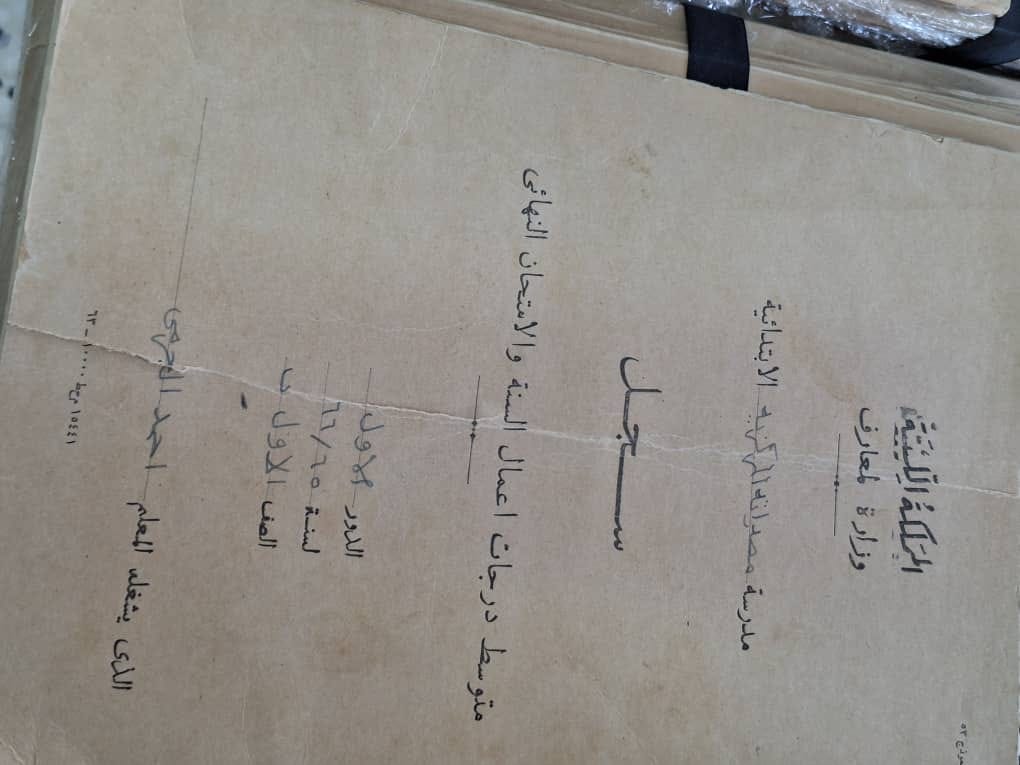 نموذج ٥٢
المملكة الليبية
وزارة المعارف
مدرسة مصراته المركزيه الابتدائية
سجل
متوسط درجات اعمال السنة والامتحان النهائى
الدور الاول
لسنة ٦٥/٦٦
الصف الاول ب
الذى يشغله المعلم احمد